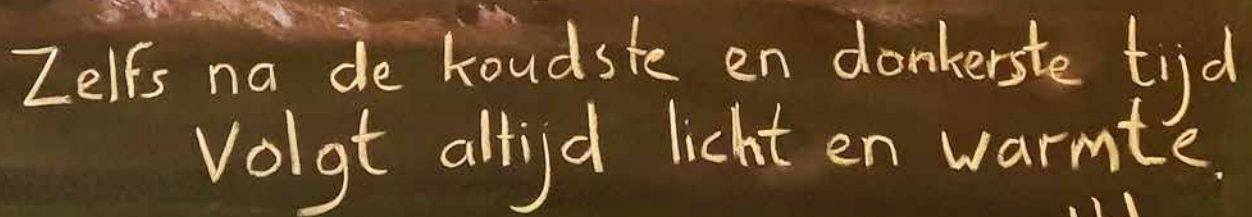 Zelfs na de koudste en donkerste tijd
Volgt altijd licht en warmte.